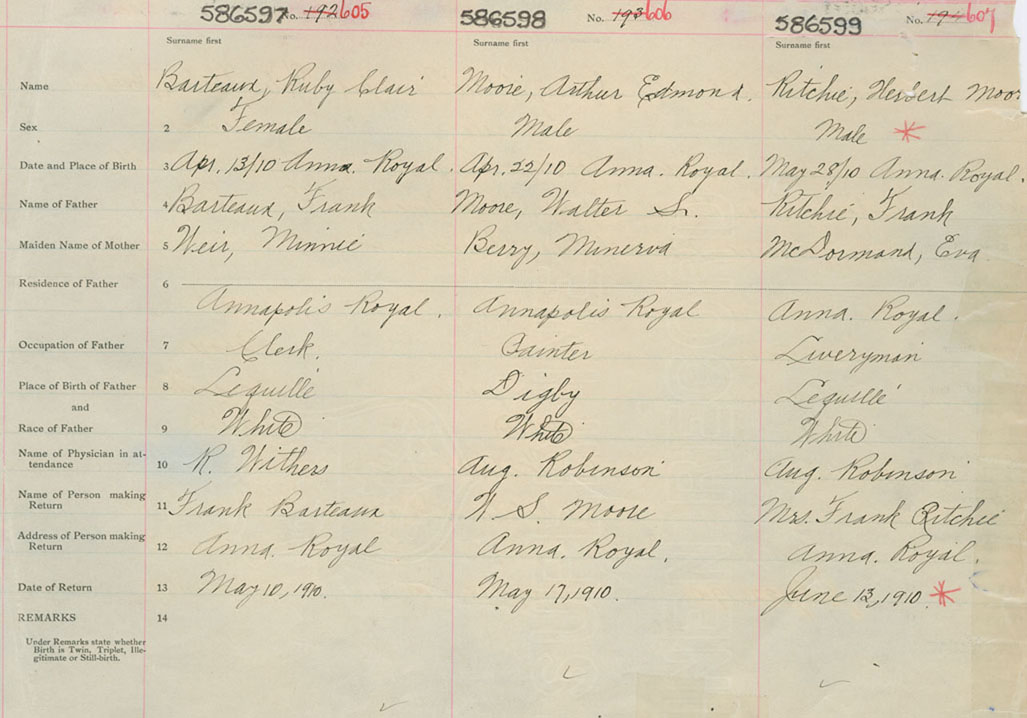 586597 No. 192 605 586598 No. 193 606 586599 No. 607
Surname first Surname first Surname first
Name Barteaux, Ruby Clair Moore, Arthur Edmond. Ritchie, Herbert Moor
Sex 2 Female Male Male *
Date and Place of Birth 3 Apr. 13/10 Anna. Royal. Apr. 22/10 Anna. Royal. May 28/10 Anna. Royal.
Name of Father 4 Barteaux, Frank Moore, Walter S. Ritchie, Frank
Maiden Name of Mother 5 Weir, Minnie Berry, Minerva McDormand, Eva
Residence of Father 6
Annapolis Royal. Annapolis Royal Anna. Royal.
Occupation of Father 7 Clerk. Painter Liveryman
Place of Birth of Father 8 Lequille Digby Lequille
and
Race of Father 9 White White White
Name of Physician in at-
tendance 10 R. Withers Aug. Robinson Aug. Robinson
Name of Person making
Return 11 Frank Barteaux W S. Moore Mrs. Frank Ritchie
Address of Person making
Return 12 Anna. Royal Anna. Royal. Anna. Royal.
Date of Return 13 May 10, 1910. May 17, 1910. June 13, 1910. *
REMARKS 14
Under Remarks state whether
Birth is Twin, Triplet, Ille-
gitimate or Still-birth.